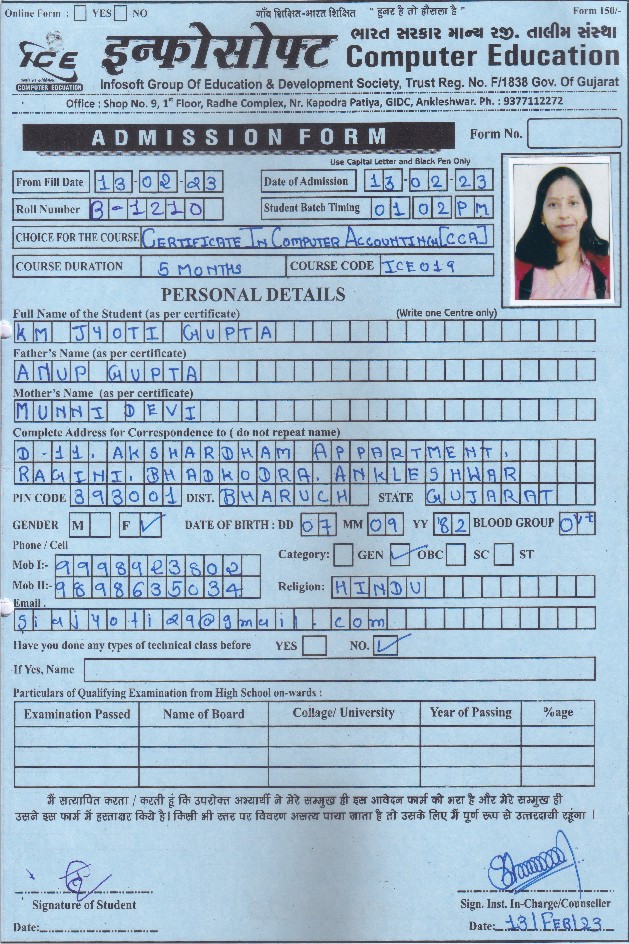 Online Form : YES NO गाँव शिक्षित-भारत शिक्षित " हुनर है तो हौसला है " Form 150/-
ICE
COMPUTER EDUCATION
इन्फोसोफ्ट ભારત સરકાર માન્ય રજી. તાલીમ સંસ્થા
Computer Education
Infosoft Group Of Education & Development Society, Trust Reg. No. F/1838 Gov. Of Gujarat
Office : Shop No. 9, 1st Floor, Radhe Complex, Nr. Kapodra Patiya, GIDC, Ankleshwar. Ph. : 9377112272
ADMISSION FORM Form No.
Use Capital Letter and Black Pen Only
From Fill Date 13-02-23 Date of Admission 13-02-23
Roll Number B-1210 Student Batch Timing 01 02 PM
CHOICE FOR THE COURSE CERTIFICATE IN COMPUTER ACCOUNTING [CCA]
COURSE DURATION 5 MONTHS COURSE CODE ICE019
PERSONAL DETAILS
Full Name of the Student (as per certificate) (Write one Centre only)
KM JYOTI GUPTA
Father's Name (as per certificate)
ANUP GUPTA
Mother's Name (as per certificate)
MUNNI DEVI
Complete Address for Correspondence to ( do not repeat name)
D-11, AKSHARDHAM APPARTMENT,
RAGINI, BHADKODRA, ANKLESHWAR
PIN CODE 393001 DIST. BHARUCH STATE GUJARAT
GENDER M F DATE OF BIRTH : DD 07 MM 09 YY 82 BLOOD GROUP
Phone / Cell
Mob I:- 9998923802 Category: GEN OBC SC ST
Mob II:- 9898635034 Religion: HINDU
Email .
siajyoti29@gmail.com
Have you done any types of technical class before YES NO.
If Yes, Name
Particulars of Qualifying Examination from High School on-wards :
Examination Passed Name of Board Collage/ University Year of Passing %age
मैं सत्यापित करता / करती हूं कि उपरोक्त अभ्यार्थी ने मेरे सम्मुख ही इस आवेदन फार्म को भरा है और मेरे सम्मुख ही
उसने इस फार्म में हस्ताक्षर किये है। किसी भी स्तर पर विवरण असत्य पाया जाता है तो उसके लिए मैं पूर्ण रूप से उत्तरदायी रहूंगा ।
Signature of Student Sign. Inst. In-Charge/Counseller
Date: Date: 13/FEB/23